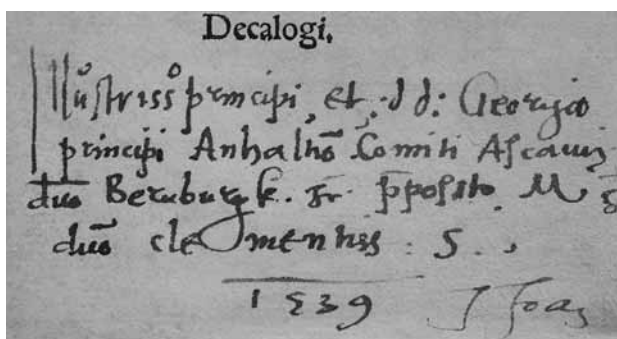 Decalogi.
Illustrissº principi, et. d d: Georgio
principi Anhaltō Comiti Ascanię
dno Bernburgk. ppositо M
dnō clementiss: S.
1539